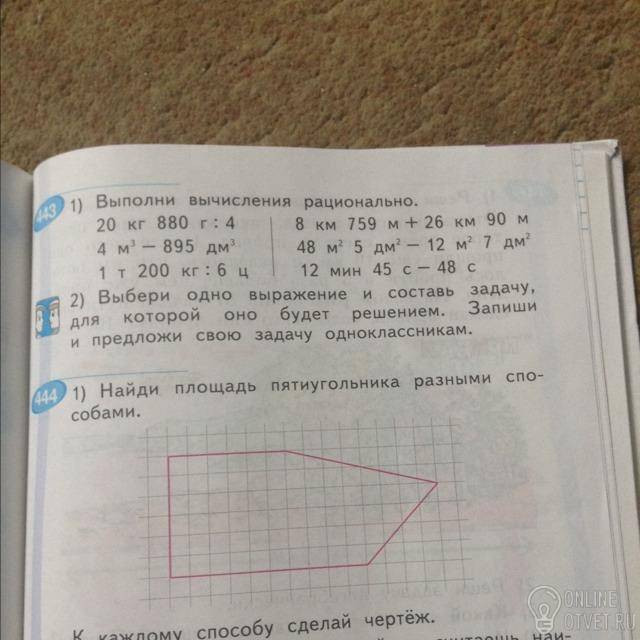 443 1) Выполни вычисления рационально.
20 кг 880 г : 4
8 км 759 м + 26 км 90 м
4 м³ − 895 дм³
48 м² 5 дм² − 12 м² 7 дм²
1 т 200 кг : 6 ц
12 мин 45 с − 48 с
2) Выбери одно выражение и составь задачу,
для которой оно будет решением. Запиши
и предложи свою задачу одноклассникам.
444 1) Найди площадь пятиугольника разными спо-
собами.
К каждому способу сделай чертёж.
ONLINE
OTVET.RU